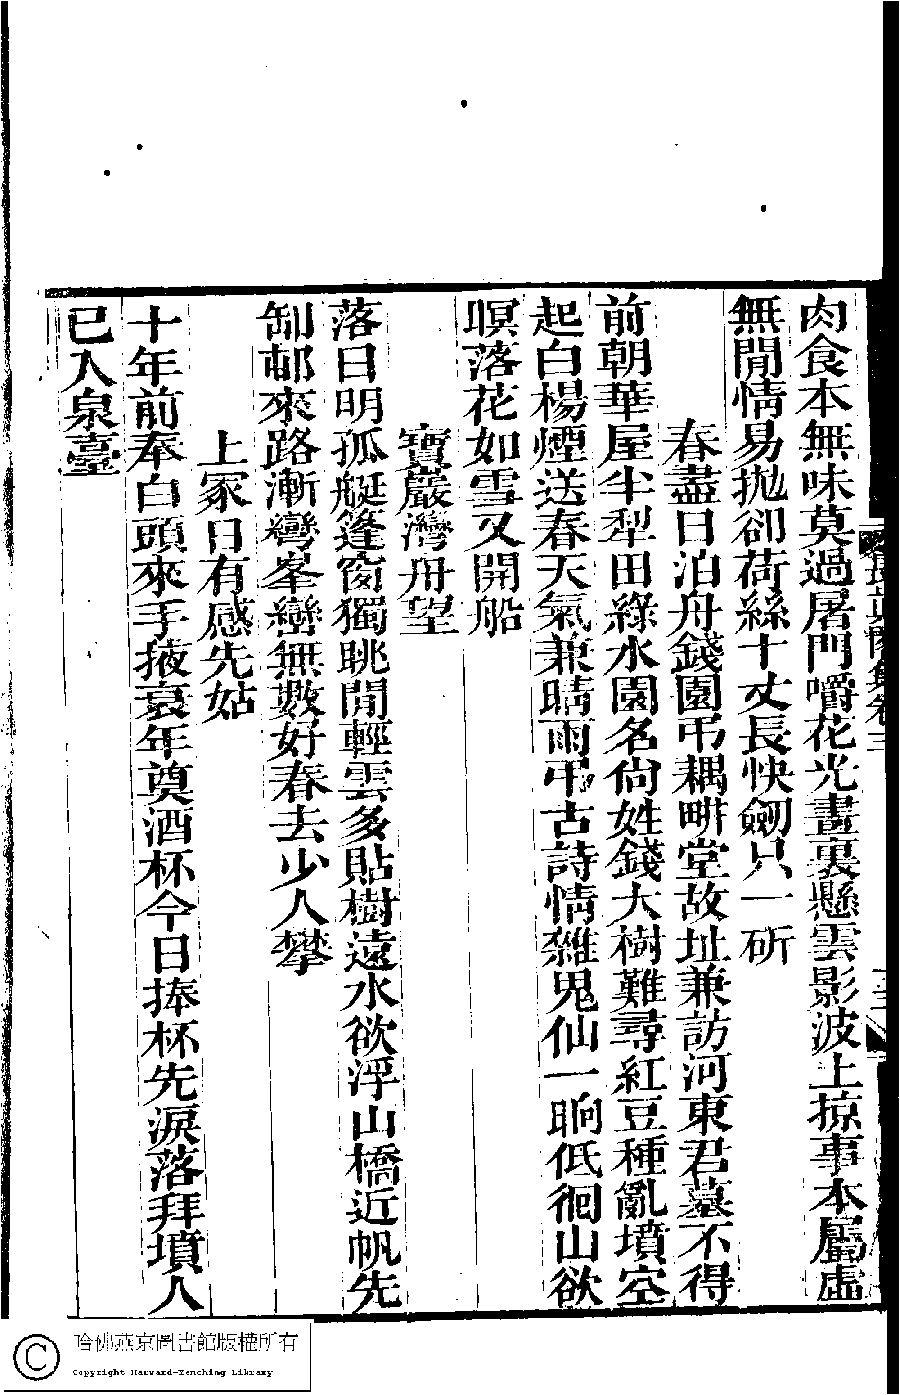 肉食本無味莫過屠門嚼花光畫裏懸雲影波上掠事本屬虛
無閒情易拋卻荷絲十丈長快劒只一斫
春盡日泊舟錢園弔耦畊堂故址兼訪河東君墓不得
前朝華屋半犁田綠水園名尙姓錢大樹難尋紅豆種亂墳空
起白楊煙送春天氣兼晴雨弔古詩情雜鬼仙一晌低徊山欲
暝落花如雪又開船
寶嚴灣舟望
落日明孤艇篷窗獨眺閒輕雲多貼樹遠水欲浮山橋近帆先
卸邨來路漸彎峯巒無數好春去少人攀
上冢日有感先姑
十年前奉白頭來手掖衰年奠酒杯今日捧杯先淚落拜墳人
已入泉臺
集卷三
哈佛燕京圖書館版權所有
Copyright Harvard-Yenching Library